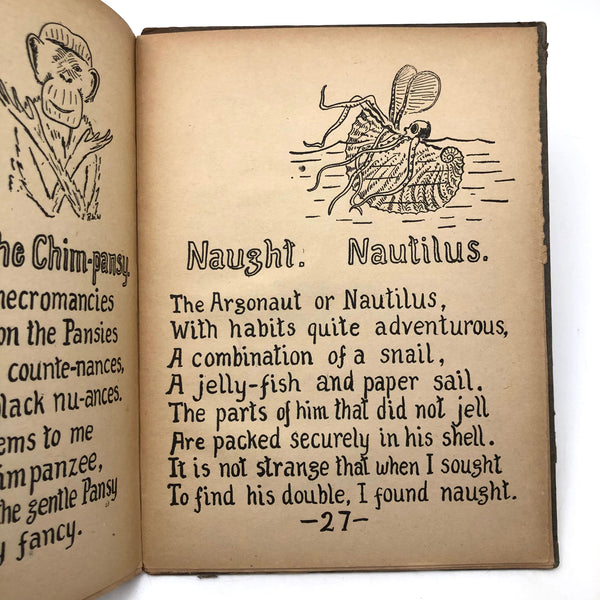 he Chim-pansy.
necromancies
on the Pansies
counte-nances,
lack nu-ances.
ems to me
impanzee,
he gentle Pansy
y fancy.
Naught. Nautilus.
The Argonaut or Nautilus,
With habits quite adventurous,
A combination of a snail,
A jelly-fish and paper sail.
The parts of him that did not jell
Are packed securely in his shell.
It is not strange that when I sought
To find his double, I found naught.
-27-